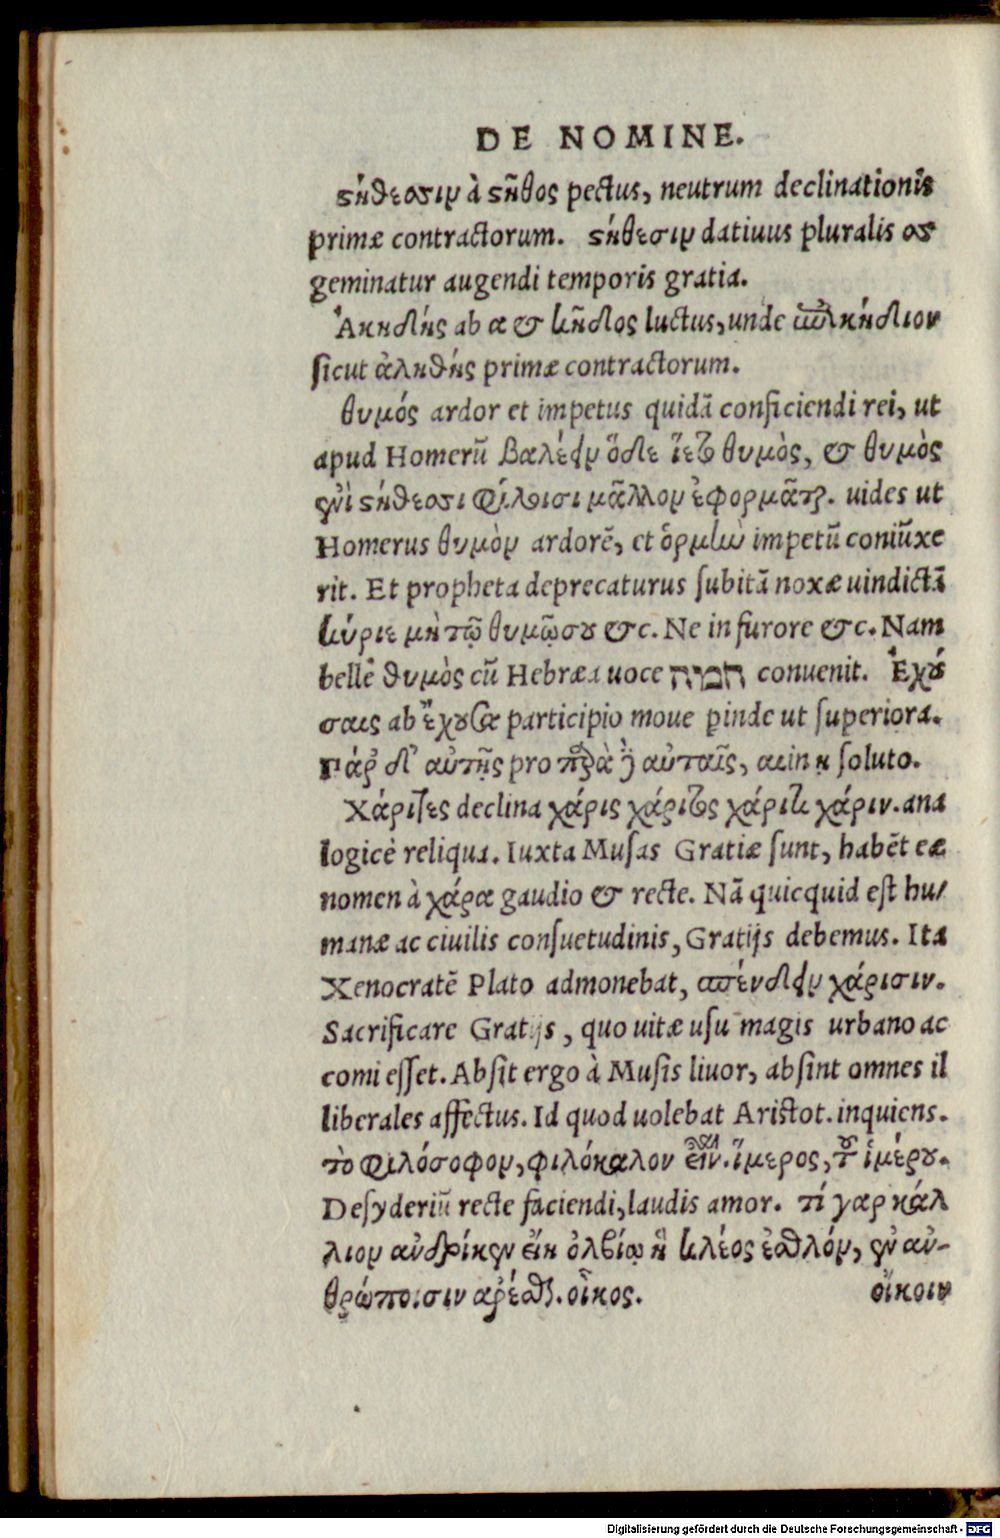 DE NOMINE.
στήθεσσιν à στῆθος pectus, neutrum declinationis
primæ contractorum. στήθεσιν datiuus pluralis σσ
geminatur augendi temporis gratia.
Ἀκηδής ab α & κῆδος luctus, unde
sicut ἀληθής primæ contractorum.
θυμός ardor et impetus quidā conficiendi rei, ut
apud Homerū βαλέειν ὅδε ἵετο θυμὸς, & θυμὸς
ἐνὶ στήθεσσι φίλοισι μᾶλλον ἐφορμᾶται. uides ut
Homerus θυμὸν ardorē, et ὁρμὼ impetū coniūxe
rit. Et propheta deprecaturus subitā noxæ uindictā
κύριε μὴ τῷ θυμῷ σου &c. Ne in furore &c. Nam
belle θυμὸς cū Hebræa uoce חמה conuenit. Ἐχού
σαις ab ἔχουσα participio moue pinde ut superiora.
Γάρ δ' αὐτῇς pro αὐταῖς, αι in η soluto.
Χάριτες declina χάρις χάριτος χάριτι χάριν. ana
logicè reliqua. Iuxta Musas Gratiæ sunt, habēt eæ
nomen à χάρα gaudio & recte. Nā quicquid est hu/
manæ ac ciuilis consuetudinis, Gratijs debemus. Ita
Xenocratē Plato admonebat, σπένδειν χάρισιν.
Sacrificare Gratijs, quo uitæ usu magis urbano ac
comi esset. Absit ergo à Musis liuor, absint omnes il
liberales affectus. Id quod uolebat Aristot. inquiens.
τὸ φιλόσοφον, φιλόκαλον εἶναι. ἵμερος, τοῦ ἱμέρου.
Desyderiū recte faciendi, laudis amor. τί γαρ κάλ
λιον ἀνδρί κεν εἴη ὀλβίῳ ἢ κλέος ἐσθλόν, ἐν ἀν-
θρώποισιν ἀρέσθαι. οἶκος.
οἴκοιν
Digitalisierung gefördert durch die Deutsche Forschungsgemeinschaft - DFG